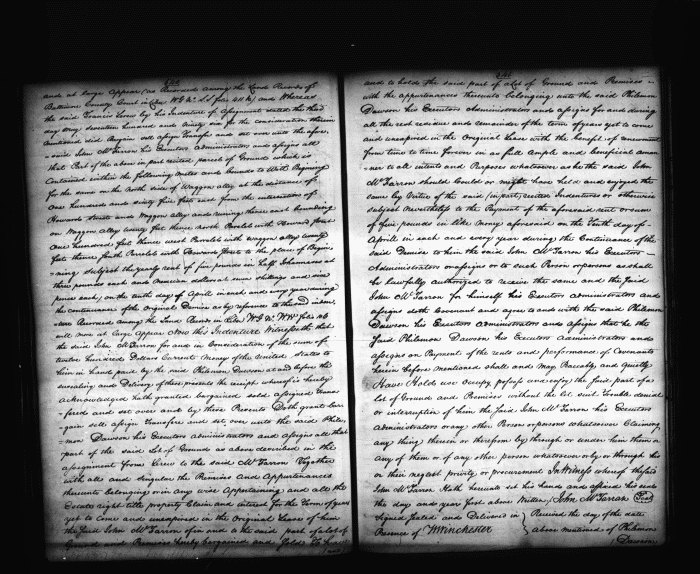 and at large appear (as Recorded Among the Land Records of
Baltimore County Court in Liber WG No. folio ) and Whereas
the said Francis Crew by his Indenture of Assignment dated the third
day May seventeen hundred and ninety for the consideration therein
mentioned did Bargain sell assign Transfer and set over unto the afore,
said John McFarron his Executors Administrators and assigns all
that Part of the above in part recited parcel of Ground which is
contained within the following metes and bounds to Wit, Beginning
for the same on the North side of Waggon alley at the distance of
One hundred and sixty five feet east from the intersection of
Howards Street and Waggon alley and runing thence east bounding
on Waggon Alley twenty feet thence north Paralel with Howard Street
One hundred feet thence west Paralel with waggon alley twenty
feet thence South Paralel with Howard Street to the place of Begin,
ning subject the yearly rent of five pounds in half Johannases at
three pounds each and American dollars at seven shillings and six
pence each, on the tenth day of April in each and every year during
the continuance of the Original Demise as by reference to the said inden,
ture Recorded among the Land Records in Liber WG No. WW folio
will more at large appear Now this Indenture Witnesseth that
the said John McFarron for and in Consideration of the sum of
twelve hundred Dollars Current Money of the United States to
him in hand paid by the said Philemon Dawson at and before the
ensealing and Delivery of these presents the receipt whereof is hereby
acknowledged hath granted bargained sold assigned trans
fered and set over and by these Presents Doth grant bar,
gain sell assign Transfere and set over unto the said Phile,
mon Dawson his Executors administrators and assigns all that
part of the said Lot of Ground as above described in the
assignment from Crew to the said McFarron Together
with all and Singular the Premises and Appurtenances
thereunto belonging or in any wise Appertaining and all the
Estate right title property Claim and interest for the Term of years
yet to Come and unexpired on the Original Lease of him
the said John McFarron of in and to the said part of a Lot of
Ground and Premises hereby bargained and Sold To have
and to hold the said part of a Lot of Ground and Premises
with the appurtenances thereunto belonging unto the said Philemon
Dawson his Executors Administrators and assigns for and during
all the rest residue and remainder of the term of years yet to come
and unexpired in the Original Lease with the benefit of renewment
from time to time forever in as full ample and beneficial man
ner to all intents and Purposes whatsoever as he the said John
McFarron should Could or might have held and enjoyed the
same by Virtue of the said (in part) recited Indentures or otherwise
subject Nevertheless to the Payment of the aforesaid rent or sum
of five pounds in like Money aforesaid on the Tenth day of
Aprill in each and every year during the Continuance of the
said Demise to him the said John McFarron his Executors
Administrators or assigns or to such Person or persons as shall
be lawfully authorized to receive the same and the said
John McFarron for himself his Executors administrators and
assigns doth Covenant and agree to and with the said Philemon
Dawson his Executors Administrators and assigns that he the
said Philemon Dawson his Executors Administrators and
assigns on Payment of the rents and performance of Covenants
herein before mentioned shall and may Peaceably and Quietly
Have Hold use Occupy possess and enjoy the said part of a
Lot of Ground and Premises without the let suit Trouble denial
or interruption of him the said John McFarron his Executors
Administrators or any other Person or persons whatsoever Claiming
any thing therein or therefrom by through or under him them or
any of them or of any other person whatsoever or by or through his
or their neglect privity or procurement In Witness whereof the said
John McFarron Hath hereunto set his hand and affixed his seal
the day and year first above Written John McFarron Seal
Signed Sealed and Delivered in Received the day of the date
Presence of WWinchester above mentioned of Philemon
Dawson